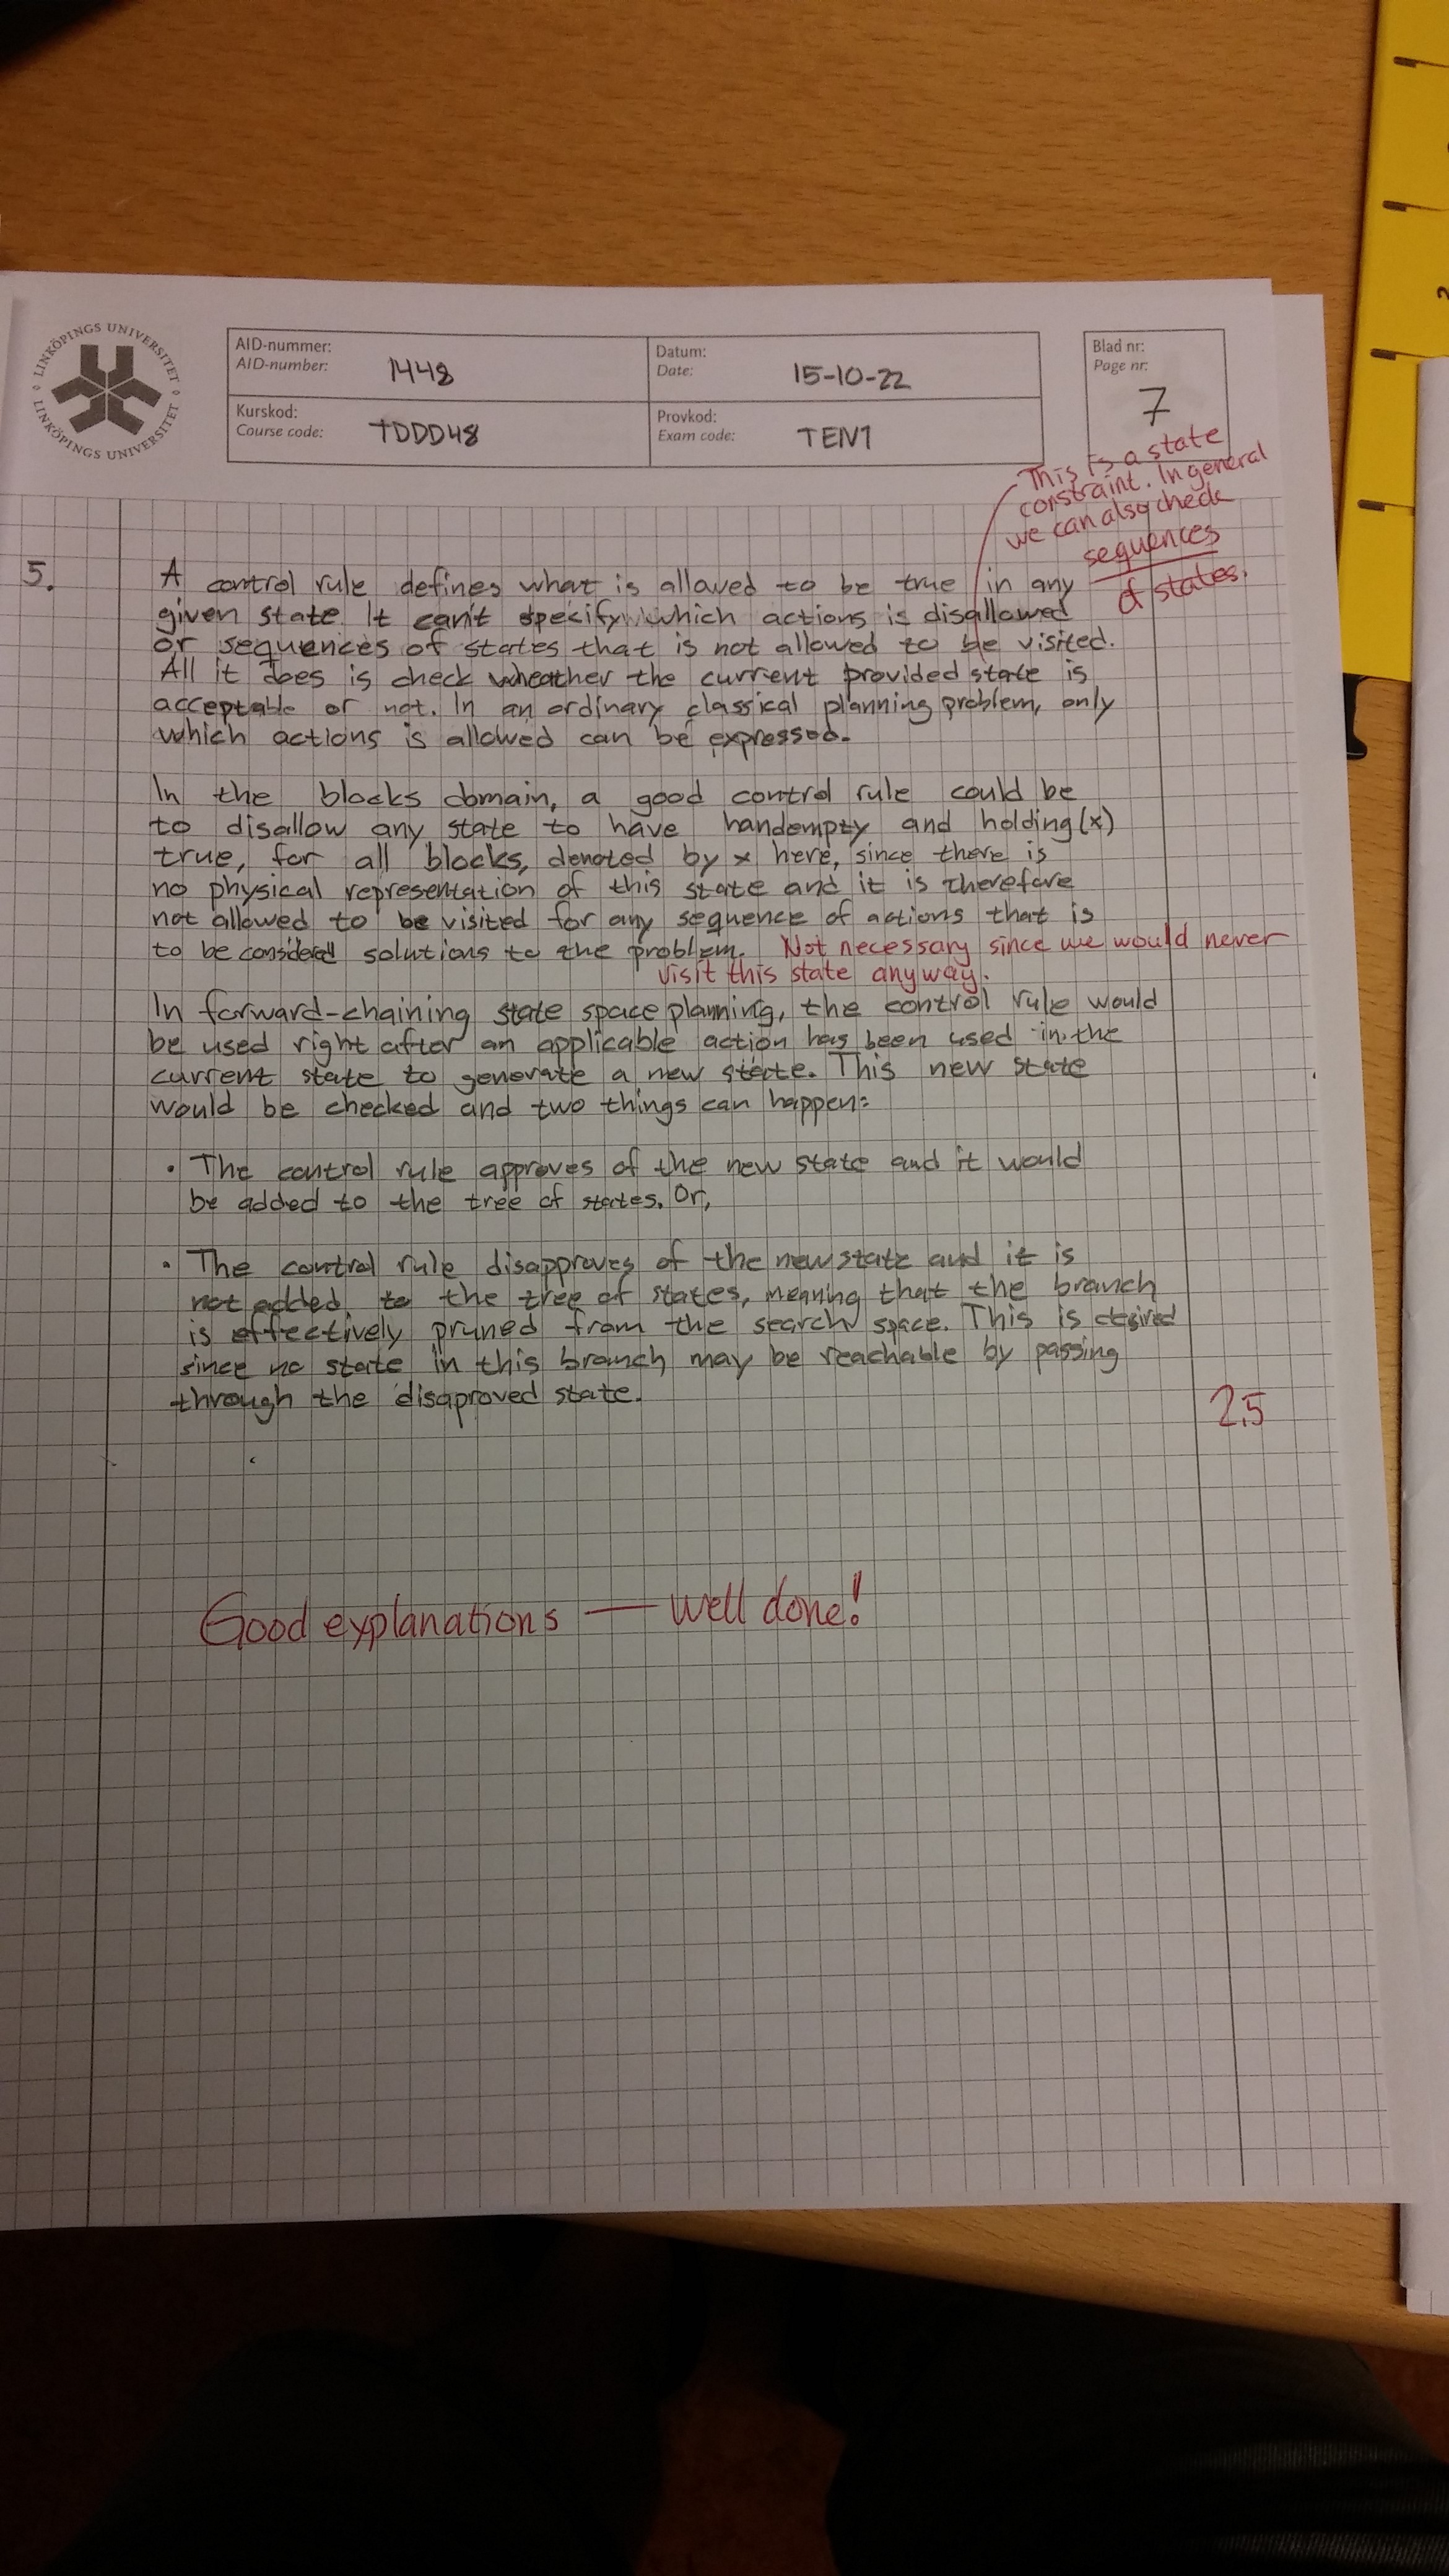 LINKÖPINGS UNIVERSITET
LINKÖPINGS UNIVERSITET
AID-nummer:
AID-number:
1448
Datum:
Date:
15-10-22
Blad nr:
Page nr:
7
Kurskod:
Course code:
TDDD48
Provkod:
Exam code:
TEN1
This is a state
constraint. In general
we can also check
sequences
of states.
5.
A control rule defines what is allowed to be true in any
given state. It can't specify which actions is disallowed
or sequences of states that is not allowed to be visited.
All it does is check wheather the current provided state is
acceptable or not. In an ordinary classical planning problem, only
which actions is allowed can be expressed.
In the blocks domain, a good control rule could be
to disallow any state to have handempty and holding(x)
true, for all blocks, denoted by x here, since there is
no physical representation of this state and it is therefore
not allowed to be visited for any sequence of actions that is
to be considered solutions to the problem.
Not necessary since we would never
visit this state anyway.
In forward-chaining state space planning, the control rule would
be used right after an applicable action has been used in the
current state to generate a new state. This new state
would be checked and two things can happen:
• The control rule approves of the new state and it would
be added to the tree of states. Or,
• The control rule disapproves of the new state and it is
not added to the tree of states, meaning that the branch
is effectively pruned from the search space. This is desired
since no state in this branch may be reachable by passing
through the disaproved state.
2,5
Good explanations — well done!
2